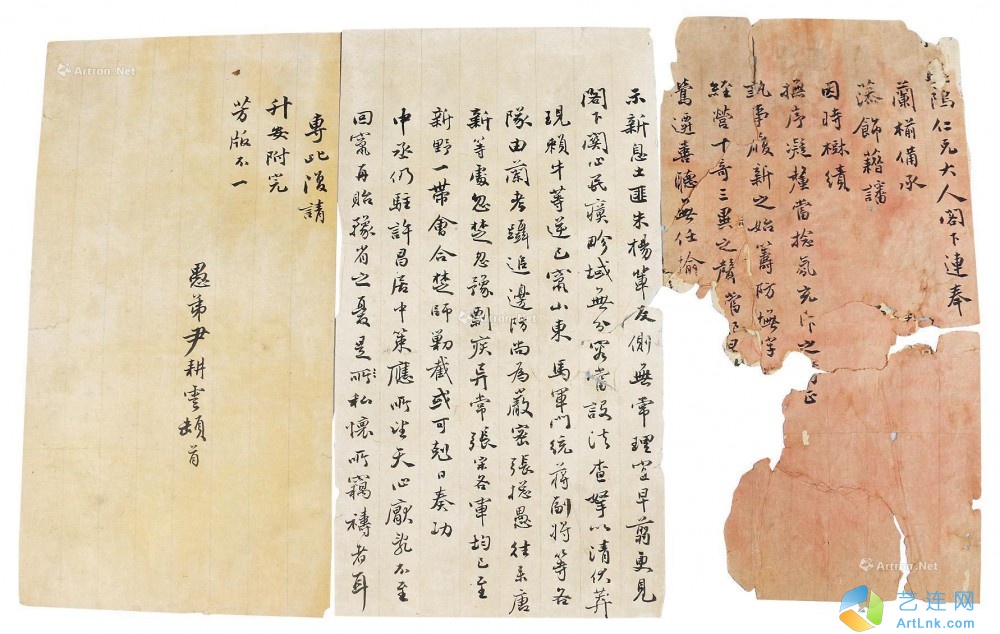 隝仁兄大人閣下連奉
蘭椾備承
藻飾藉諗
因時樹績
撫序凝釐當捴氛充斥之
執事履新之始籌防撫字
經營十奇三異之聲當
鶯遷喜聽無任
示新息土匪朱楊輩反側無常理宜早翦更見
閣下關心民瘼畛域無分容當設法查拏以清伏莽
現賴牛等逆已竄山東馬軍門統蔣副將等各
隊由蘭考躡追邊防尚為嚴密張捴愚往來唐
新等處忽楚忽豫剽疾異常張宋各軍均已至
新野一帶會合楚師勦截或可剋日奏功
中丞仍駐許昌居中策應所望天心厭亂不至
回竄再貽豫省之憂是所私懷所竊禱者耳
專此復請
升安附完
芳版不一
愚弟尹耕雲頓首
Artron.Net
Artron.Net
Artron.Net
艺连网
ArtLnk.com